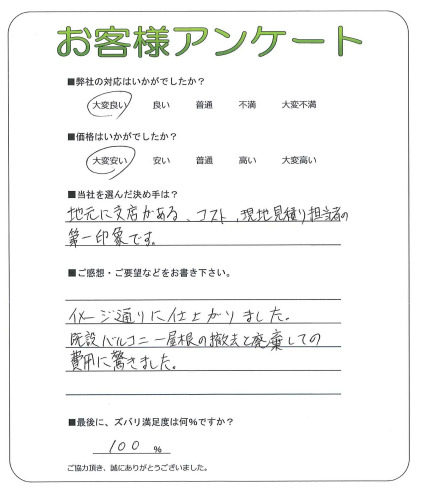 お客様アンケート
■弊社の対応はいかがでしたか？
大変良い 良い 普通 不満 大変不満
■価格はいかがでしたか？
大変安い 安い 普通 高い 大変高い
■当社を選んだ決め手は？
地元に支店がある、コスト、現地見積り担当者の
第一印象です。
■ご感想・ご要望などをお書き下さい。
イメージ通りに仕上がりました。
既設バルコニー屋根の撤去と廃棄しての
費用に驚きました。
■最後に、ズバリ満足度は何%ですか？
100 %
ご協力頂き、誠にありがとうございました。